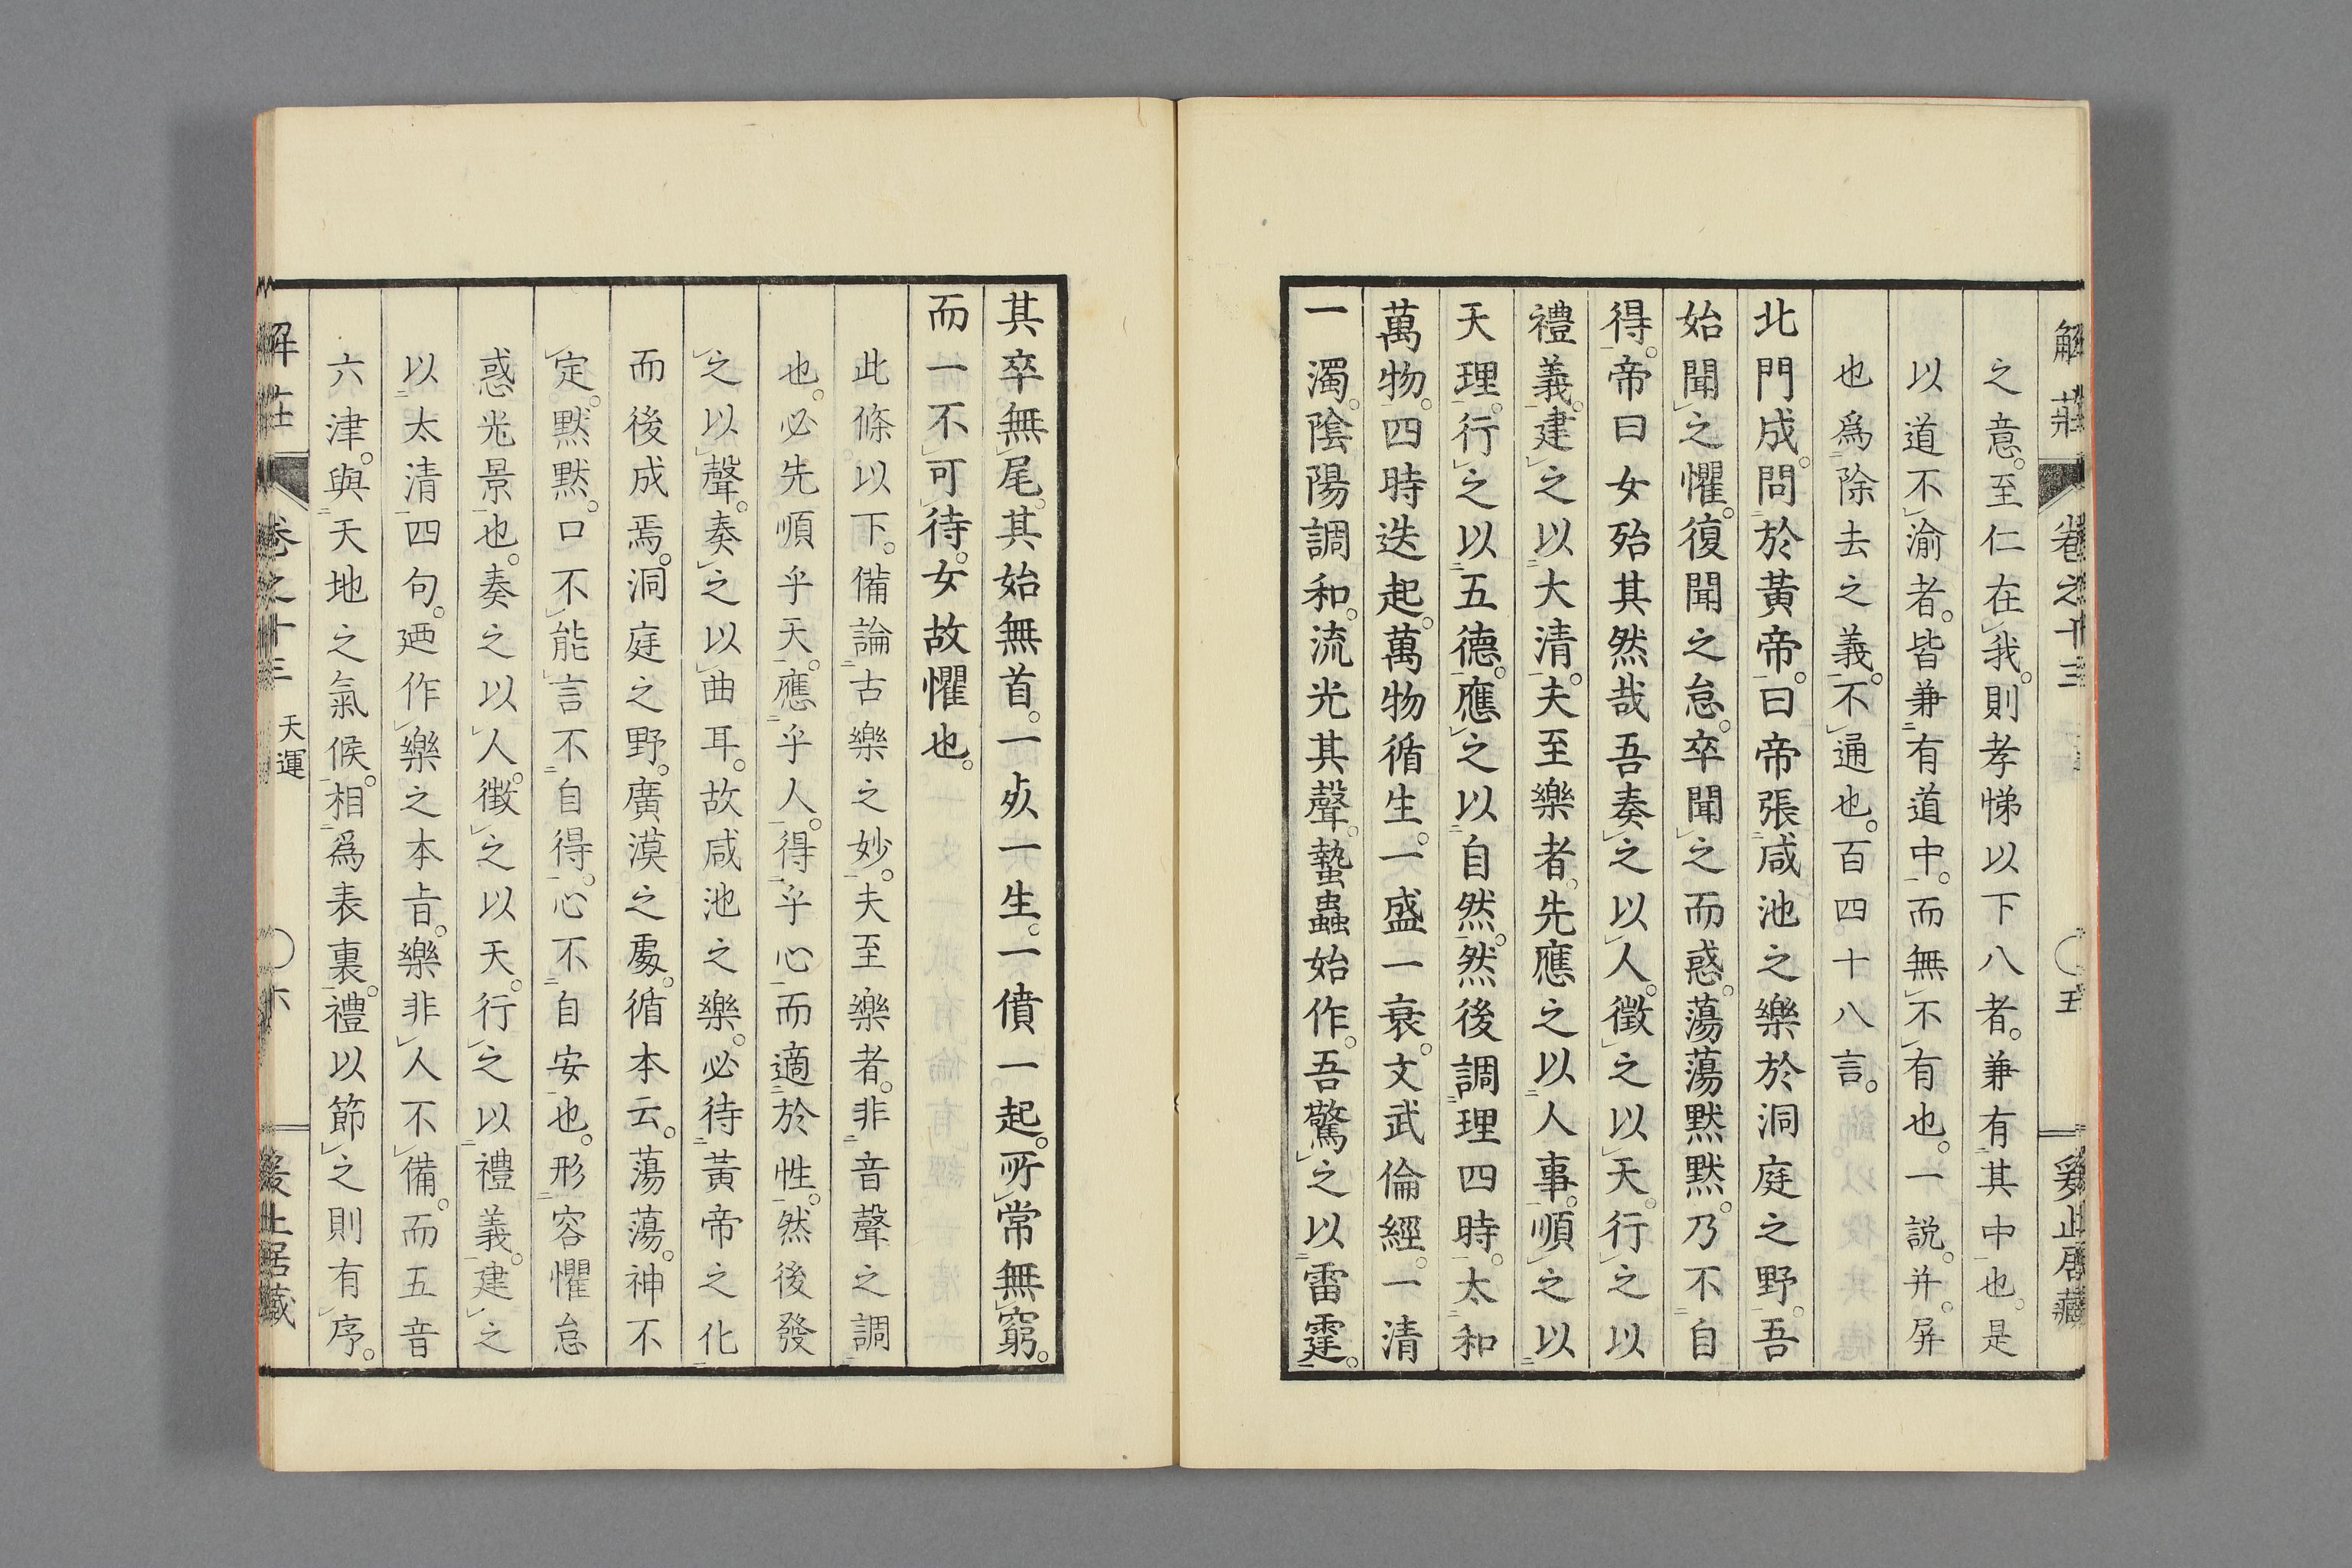 解莊 卷之十三 五 爰止居藏
之意。至仁在我。則孝悌以下八者。兼有其中也。是
以道不渝者。皆兼有道中。而無不有也。一説。并。屏
也爲除去之義。不通也。百四十八言。
北門成。問於黃帝。曰帝張咸池之樂於洞庭之野。吾
始聞之懼。復聞之怠。卒聞之而惑。蕩蕩默默。乃不自
得。帝曰女殆其然哉吾奏之以人。徵之以天。行之以
禮義。建之以大清。夫至樂者。先應之以人事。順之以
天理。行之以五德。應之以自然。然後調理四時。太和
萬物。四時迭起。萬物循生。一盛一衰。文武倫經。一清
一濁。陰陽調和。流光其聲。蟄蟲始作。吾驚之以雷霆。
其卒無尾。其始無首。一㱙一生。一僨一起。所常無窮。
而一不可待。女故懼也。
此條以下。備論古樂之妙。夫至樂者。非音聲之調
也。必先順乎天。應乎人。得乎心而適於性。然後發
之以聲。奏之以曲耳。故咸池之樂。必待黃帝之化
而後成焉。洞庭之野。廣漠之處。循本云。蕩蕩。神不
定。默默。口不能言不自得。心不自安也。形容懼怠
惑光景也。奏之以人。徵之以天。行之以禮義。建之
以太清四句。廼作樂之本旨。樂非人不備。而五音
六津。與天地之氣候。相爲表裏。禮以節之則有序。
解莊 卷之十三 天運 六 爰止居藏